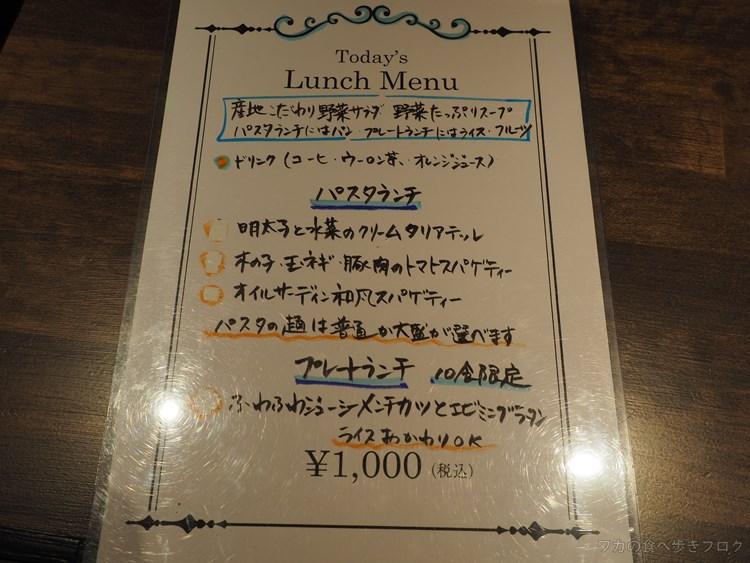 Today's
Lunch Menu
産地こだわり野菜サラダ 野菜たっぷりスープ
パスタランチにはパン・プレートランチにはライス・フルーツ
ドリンク(コーヒー・ウーロン茶・オレンジジュース)
パスタランチ
明太子と水菜のクリームタリアテッレ
木の子・玉ネギ・豚肉のトマトスパゲティー
オイルサーディン和風スパゲティー
パスタの麺は普通か大盛が選べます
プレートランチ 10食限定
ふわふわジューシーメンチカツとエビミニグラタン
ライスおかわりOK
¥1,000 (税込)
ワカの食べ歩きブログ